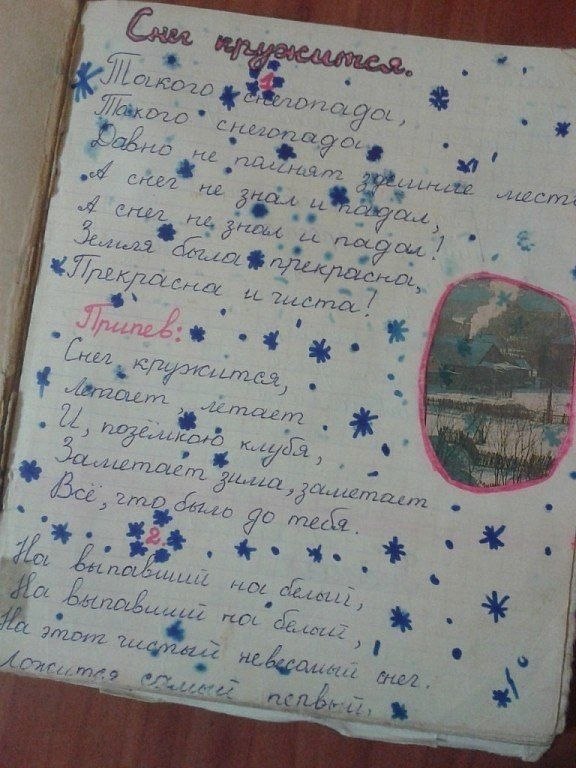 Снег кружится.
1
Такого снегопада,
Такого снегопада
Давно не помнят здешние места
А снег не знал и падал,
А снег не знал и падал!
Земля была прекрасна,
Прекрасна и чиста!
Припев:
Снег кружится,
Летает, летает
И, позёмкою клубя,
Заметает зима, заметает
Всё, что было до тебя.
2.
На выпавший на белый,
На выпавший на белый,
На этот чистый невесомый снег.
Ложится самый первый,